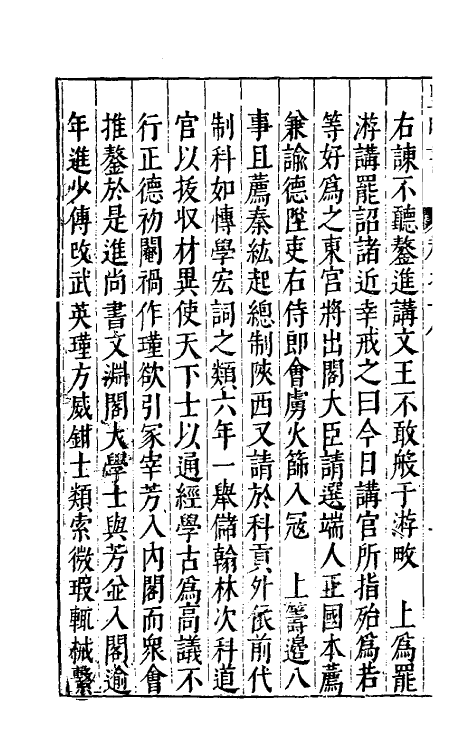 右諫不聽鏊進講文王不敢般于游畋　上爲罷
游講罷詔諸近幸戒之曰今日講官所指殆爲若
等好爲之東宮將出閣大臣請選端人正國本薦
兼諭德陞吏右侍郎會虜火篩入寇　上籌邊八
事且薦秦紘起總制陝西又請於科貢外倣前代
制科如愽學宏詞之類六年一舉儲翰林次科道
官以抜収材異使天下士以通經學古爲高議不
行正德初閹禍作瑾欲引冢宰芳入內閣而衆會
推鏊於是進尚書文淵閣大學士與芳並入閣逾
年進少傅改武英瑾方威鉗士類索微瑕輒械繫